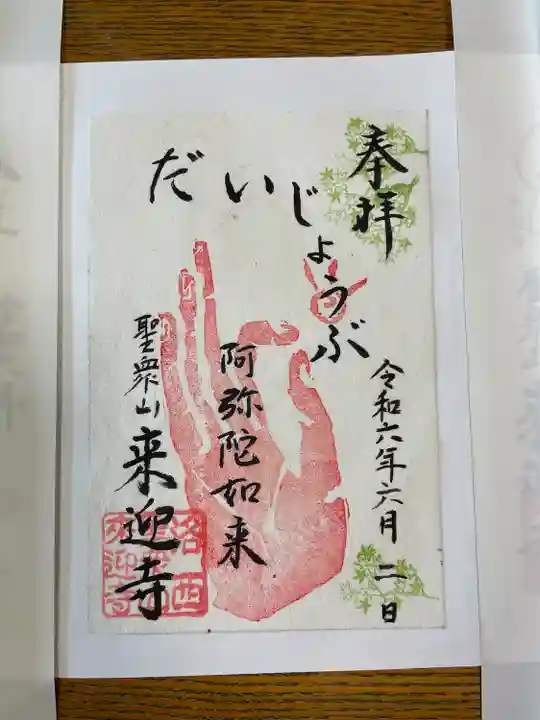 奉拝
だいじょうぶ
令和六年六月二日
阿弥陀如来
聖衆山来迎寺
洛西